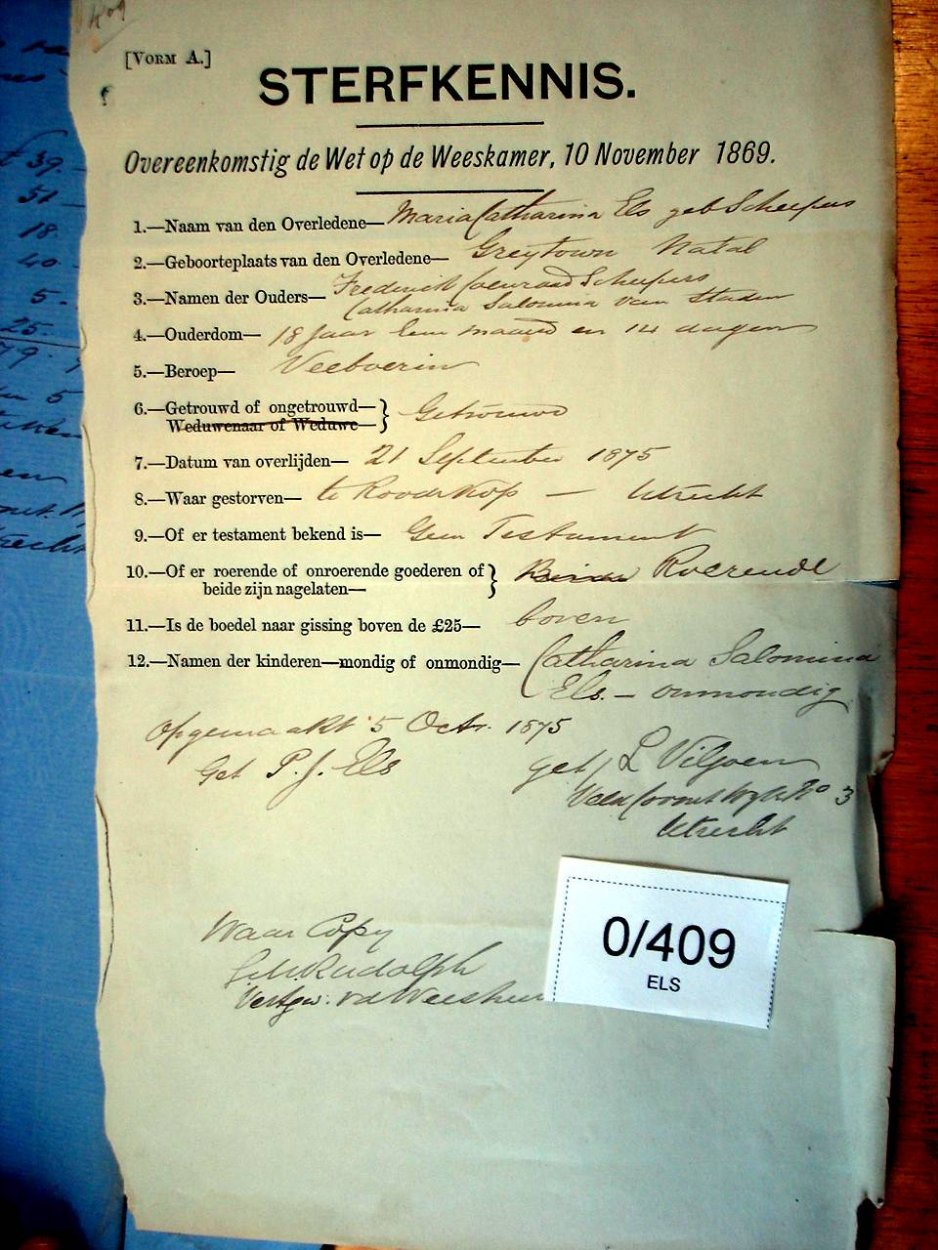 409
[VORM A.]
STERFKENNIS.
Overeenkomstig de Wet op de Weeskamer, 10 November 1869.
1.—Naam van den Overledene— Maria Catharina Els geb Scheepers
2.—Geboorteplaats van den Overledene— Greytown Natal
3.—Namen der Ouders— Frederick Coenraad Scheepers
Catharina Salomina van Staden
4.—Ouderdom— 18 Jaar een maand en 14 dagen
5.—Beroep— Veeboerin
6.—Getrouwd of ongetrouwd— Getrouwd
Weduwenaar of Weduwe—
7.—Datum van overlijden— 21 September 1875
8.—Waar gestorven— te Roodekop — Utrecht
9.—Of er testament bekend is— Geen Testament
10.—Of er roerende of onroerende goederen of Roerende
beide zijn nagelaten—
11.—Is de boedel naar gissing boven de £25— boven
12.—Namen der kinderen—mondig of onmondig— Catharina Salomina
Els — onmondig
Opgemaakt 5 Octr. 1875
Get P. J. Els
get/ L Viljoen
Veldcornet Wyk No 3
Utrecht
Waar Copy
Rudolph
Vertgw. v d Weesheer
0/409
ELS
39.
51.
18
40.
5.
25.